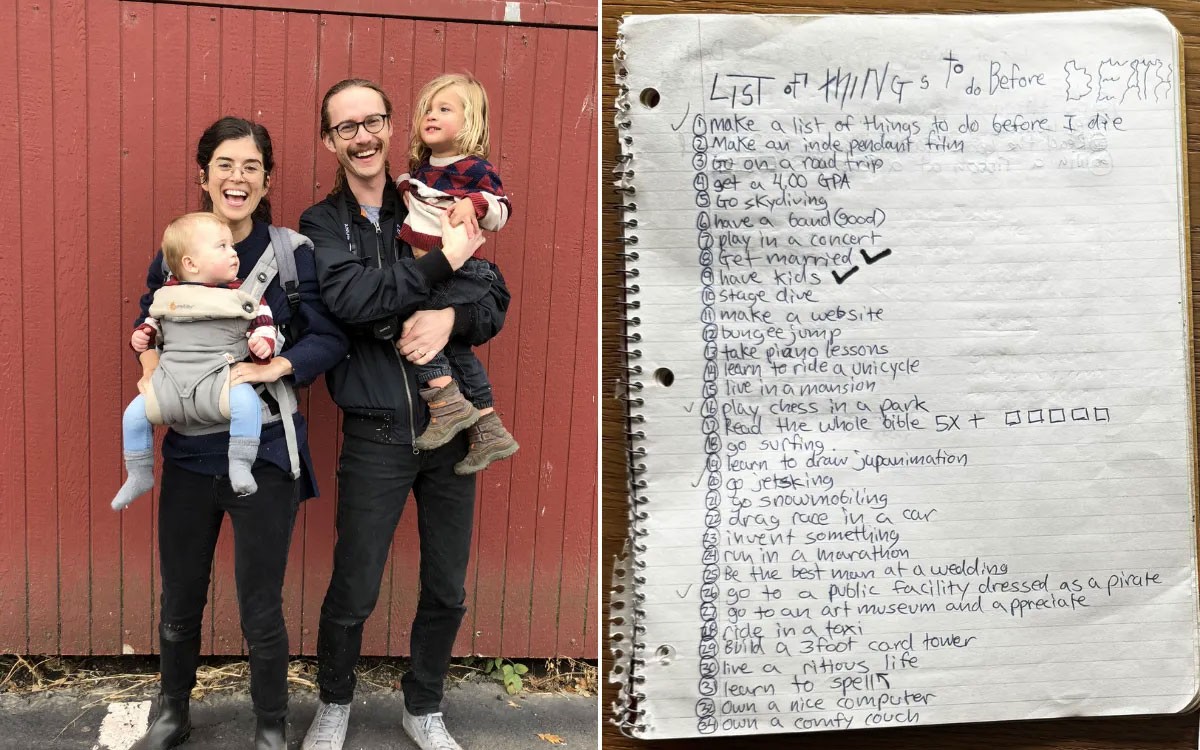 LIST of THINGs To do Before DEATH
① make a list of things to do before I die
② Make an independant film
③ Go on a road trip
④ get a 4.00 GPA
⑤ Go skydiving
⑥ have a band (good)
⑦ play in a concert
⑧ Get married ✓
⑨ have kids ✓
⑩ stage dive
⑪ make a website
⑫ bungee jump
⑬ take piano lessons
⑭ learn to ride a unicycle
⑮ live in a mansion
⑯ play chess in a park
⑰ Read the whole bible 5X + □□□□□
⑱ go surfing
⑲ learn to draw japanimation
⑳ go jetsking
㉑ go snowmobiling
㉒ drag race in a car
㉓ invent something
㉔ run in a marathon
㉕ Be the best man at a wedding
㉖ go to a public facility dressed as a pirate
㉗ go to an art museum and appreciate
㉘ ride in a taxi
㉙ Build a 3foot card tower
㉚ live a rittous life
㉛ learn to spell
㉜ own a nice computer
㉞ own a comfy couch